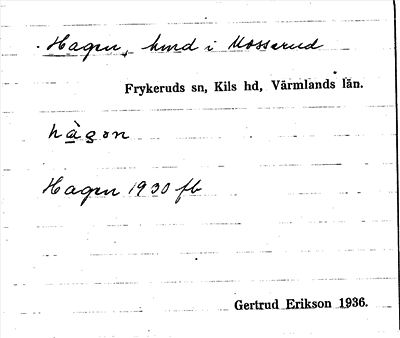 Hagen, hmd i Mosserud
Frykeruds sn, Kils hd, Värmlands län.
hà̲gon
Hagen 1930 fb
Gertrud Erikson 1936.